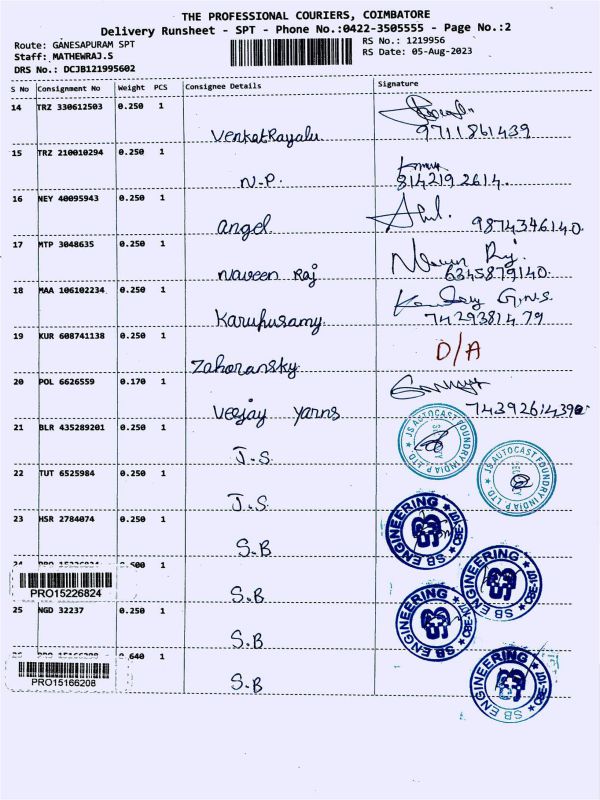 THE PROFESSIONAL COURIERS, COIMBATORE
Delivery Runsheet - SPT - Phone No.:0422-3505555 - Page No.:2
Route: GANESAPURAM SPT
RS No.: 1219956
Staff: MATHEWRAJ.S
RS Date: 05-Aug-2023
DRS No.: DCJB121995602
S No Consignment No Weight PCS Consignee Details Signature
14 TRZ 330612503 0.250 1
VenkatRayalu 9711861439
15 TRZ 210010294 0.250 1
N.P. 814219 2614.
16 NEY 40095943 0.250 1
angel 9874346140.
17 MTP 3048635 0.250 1
naveen Raj 6345879140.
18 MAA 106102234 0.250 1
Karuhusamy 7429381479
19 KUR 608741138 0.250 1 D/A
Zahoransky
20 POL 6626559 0.170 1
Veejay yarns
21 BLR 435289201 0.250 1
J.S
JS AUTOCAST FOUNDRY INDIA P. LTD
SECURITY
22 TUT 6525984 0.250 1
J.S
JS AUTOCAST FOUNDRY INDIA P. LTD
SECURITY
23 HSR 2784074 0.250 1
S.B
SB ENGINEERING
CBE-107
PRO15226824
S.B
SB ENGINEERING
CBE-107
25 NGD 32237 0.250 1
S.B
SB ENGINEERING
CBE-107
0.640 1
PRO15166208
S.B
SB ENGINEERING
CBE-107